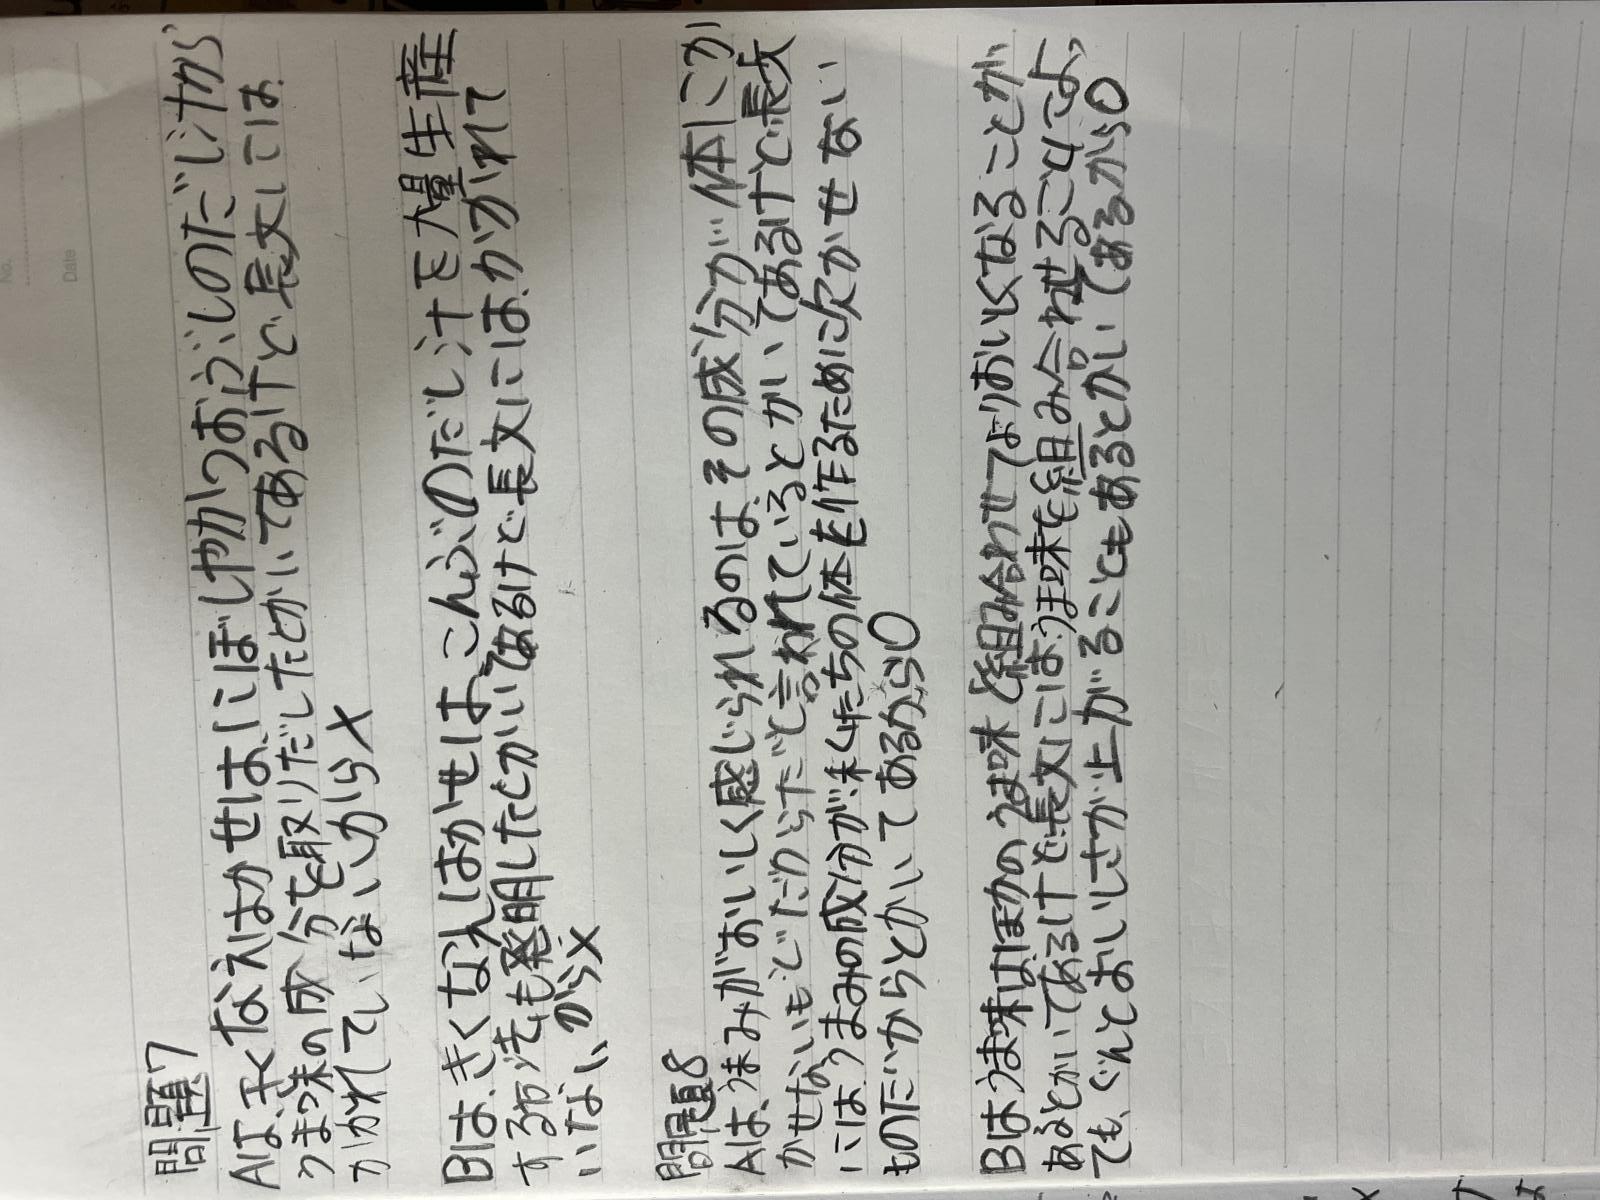 No.
Date
問題7
Aは、きくなえはかせはにぼしやかつおぶしのだし汁から
うま味の成分を取りだしたとかいてあるけど長文には
かかれていないから×
Bは、きくなえはかせは、こんぶのだし汁を大量生産
する方法も発明したとかいてあるけど長文にはかかれて
いないから×
問題8
Aは、うまみがおいしく感じられるのは、その成分が体にか
かせないもどだからだと言われているとかいてあるけど長文
には、うまみの成分が、未くたちの体を作るために欠かせない
ものだからとかいてあるから○
Bはうま味はほかのうま味と組み合わせてよりおいしくなることが
あるとかいてあるけど長文には、うま味を組み合わせることによっ
ても、ぐんとおいしさが上がることもあるとかいてあるから○